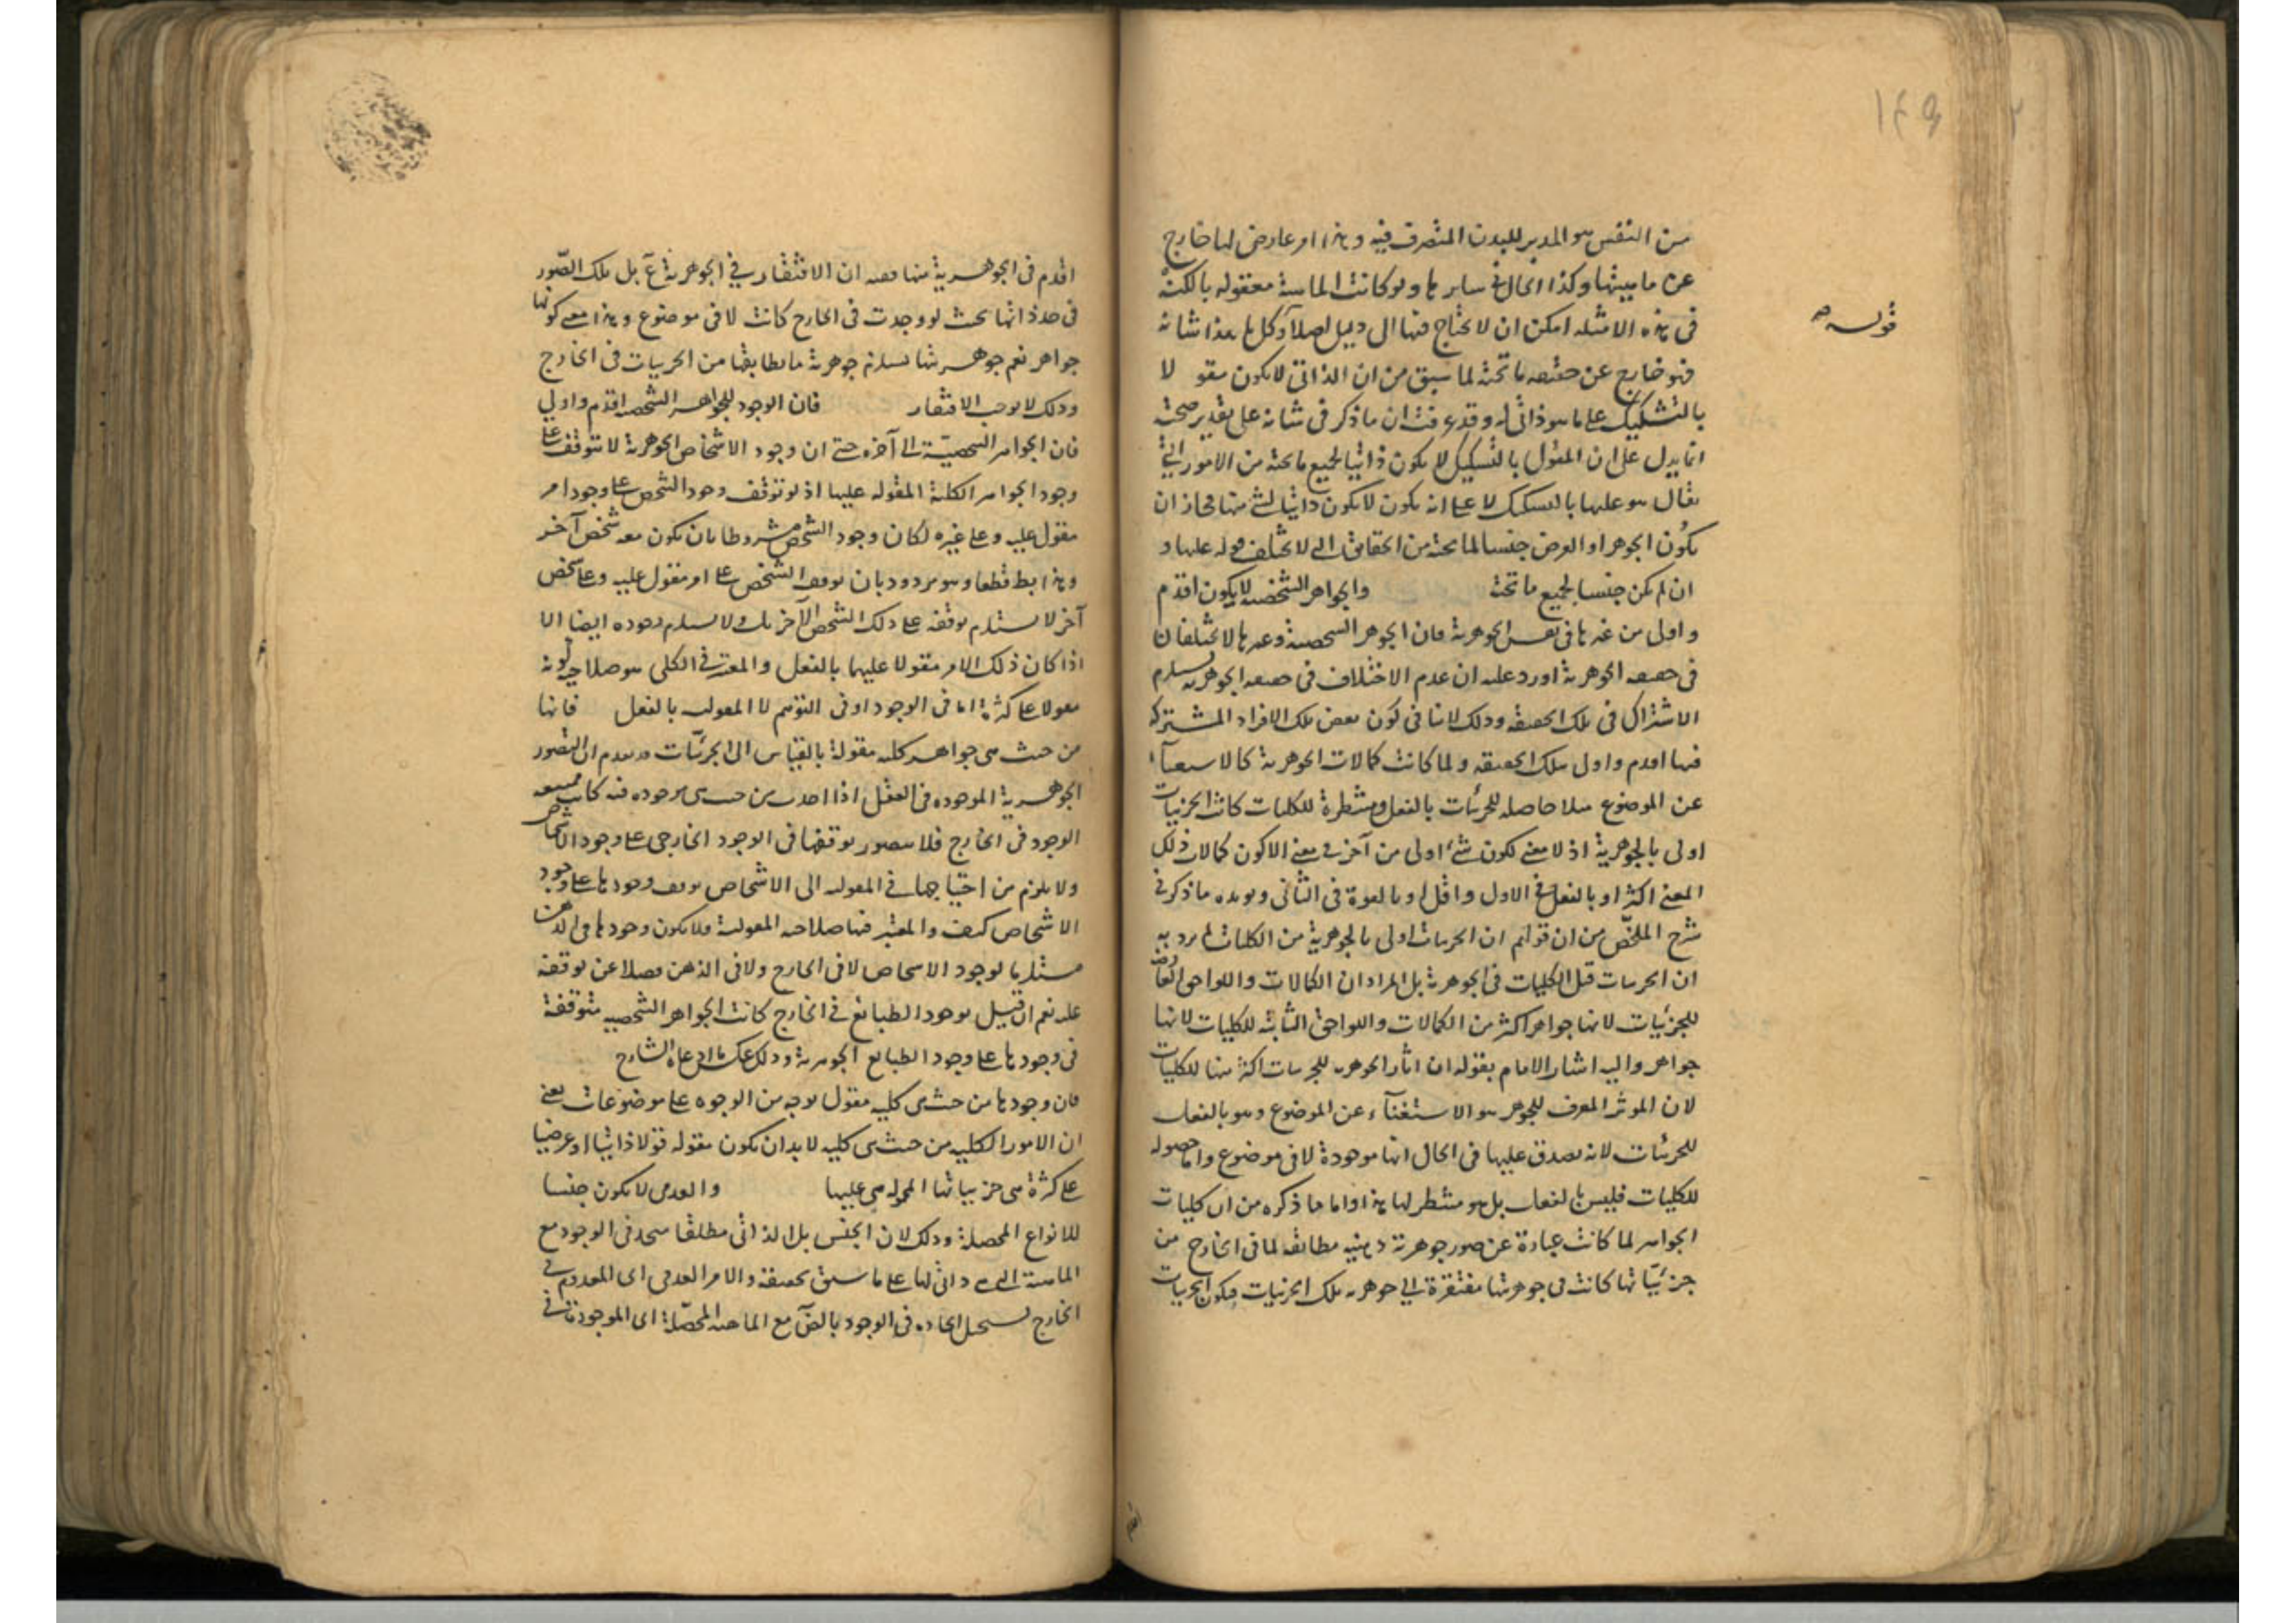 ١٤٩
قوله
من النفس هو المدبر للبدن المتصرف فيه وهذا امر عارض لها خارج
عن ماهيتها وكذا الحال في سايرها ولو كانت الماهية معقوله بالكنه
فى هذه الامثله امكن ان لا يحتاج فيها الى دليل اصلا وكل ما هذا شانه
فهو خارج عن حقيقه ما تحته لما سبق من ان الذاتى لا يكون مقو لا
بالتشكيك على ما هو ذاتى له وقد عرفت ان ما ذكر فى شانه على تقدير صحته
انما يدل على ان المقول بالتشكيك لا يكون ذاتيا لجميع ما تحته من الامور التي
يقال هو عليها بالتشكيك لا على انه يكون لا يكون ذاتيا لشئ منها فجاز ان
يكون الجوهر او العرض جنسا لما تحته من الحقايق التى لا يختلف قوله عليها و
ان لم يكن جنسا لجميع ما تحته والجواهر الشخصية لا يكون اقدم
و اولى من غيرها فى نفس الجوهرية فان الجوهر الشخصية وغيرها لا تختلفان
فى حقيقه الجوهرية اورد عليه ان عدم الاختلاف فى حقيقه الجوهريه يستلزم
الاشتراك فى تلك الحقيقه وذلك لا ينافى كون بعض تلك الافراد المشتركه
فيها اقدم واولى بتلك الحقيقه ولما كانت كمالات الجوهرية كالاستغنآء
عن الموضوع مثلا حاصله للجزئيات بالفعل ومنتظرة للكليات كانت الجزئيات
اولى بالجوهرية اذ لا معنى لكون شئ اولى من آخر فى معنى الا كون كمالات ذلك
المعنى اكثر او بالفعل فى الاول واقل او بالقوة فى الثانى ويويده ما ذكر في
شرح الملخّص من ان قولهم ان الجزئيات اولى بالجوهرية من الكليات لم يرد به
ان الجزئيات قبل الكليات فى الجوهرية بل المراد ان الكمالات واللواحق العارضة
للجزئيات لانها جواهر اكثر من الكمالات واللواحق الثابتة للكليات لانها
جواهر واليه اشار الامام بقوله ان اثار الجوهريه للجزئيات اكثر منها للكليات
لان الموثر المعرف للجوهر هو الاستغنآء عن الموضوع وهو بالفعل
للجزئيات لانه يصدق عليها فى الحال انها موجودة لا فى موضوع واما حصوله
للكليات فليس بالفعل بل هو منتظر لها هذا واما ما ذكره من ان كليات
الجواهر لما كانت عبارة عن صور جوهرية ذهنيه مطابقه لما فى الخارج من
جزئيّاتها كانت فى جوهريتها مفتقرة الى جوهريه تلك الجزئيات فيكون الجزئيات
اقدم
اقدم فى الجوهرية منها ففيه ان الافتقار في الجوهرية غآ بل تلك الصّور
فى حد ذاتها بحيث لو وجدت فى الخارج كانت لا فى موضوع وهذا معنى كونها
جواهر نعم جوهريتها يستلزم جوهرية ما يطابقها من الجزئيات فى الخارج
وذلك لا يوجب الافتقار فان الوجود للجواهر الشخصية اقدم واولى
فان الجواهر الشخصيّة الى آخره حتى ان وجود الاشخاص الجوهرية لا يتوقف على
وجود الجواهر الكلية المقوله عليها اذ لو توقف وجود الشخص على وجود امر
مقول عليه وعلى غيره لكان وجود الشخص مشروطا بان يكون معه شخص آخر
وهذا بط قطعا وهو مردود بان توقف الشخص على امر مقول عليه وعلى شخص
آخر لا يستلزم توقفه على ذلك الشخص الآخر بل ولا يستلزم وجوده ايضا الا
اذا كان ذلك الامر مقولا عليهما بالفعل والمعتبر فى الكلى هو صلاحية كونه
مقولا على كثرة اما فى الوجود او فى التوهم لا المقوليه بالفعل فانها
من حيث هى جواهر كليه مقولة بالقياس الى الجزئيّات قد تقدم ان الصور
الجوهرية الموجوده فى العقل اذا اخذت من حيث هى موجوده فيه كانت ممتنعه
الوجود فى الخارج فلا يتصور توقفها فى الوجود الخارجى على وجود الاشخاص
ولا يلزم من احتياجها فى المقوليه الى الاشخاص توقف وجودها على وجود
الاشخاص كيف والمعتبر فيها صلاحيه المقولية فلا يكون وجودها فى الذهن
مستلزما لوجود الاشخاص لا فى الخارج ولا فى الذهن فضلا عن توقفه
عليه نعم ان قيل بوجود الطبائع فى الخارج كانت الجواهر الشخصيه متوقفة
فى وجودها على وجود الطبايع الجوهرية وذلك عكس ما ادعاه الشارح
فان وجودها من حيث هى كليه مقول بوجه من الوجوه على موضوعات يعنى
ان الامور الكليه من حيث هى كليه لا بد ان يكون مقوله قولا ذاتيا او عرضيا
على كثرة هى جزئياتها المحموله هى عليها والعدمى لا يكون جنسا
للانواع المحصلة وذلك لان الجنس بل الذاتى مطلقا متحد فى الوجود مع
الماهية التى هى ذاتى لها على ما سبق تحقيقه والامر العدمى اى المعدوم فى
الخارج يستحيل اتحاده فى الوجود بالضآ مع الماهيه المحصّلة اى الموجودة فى